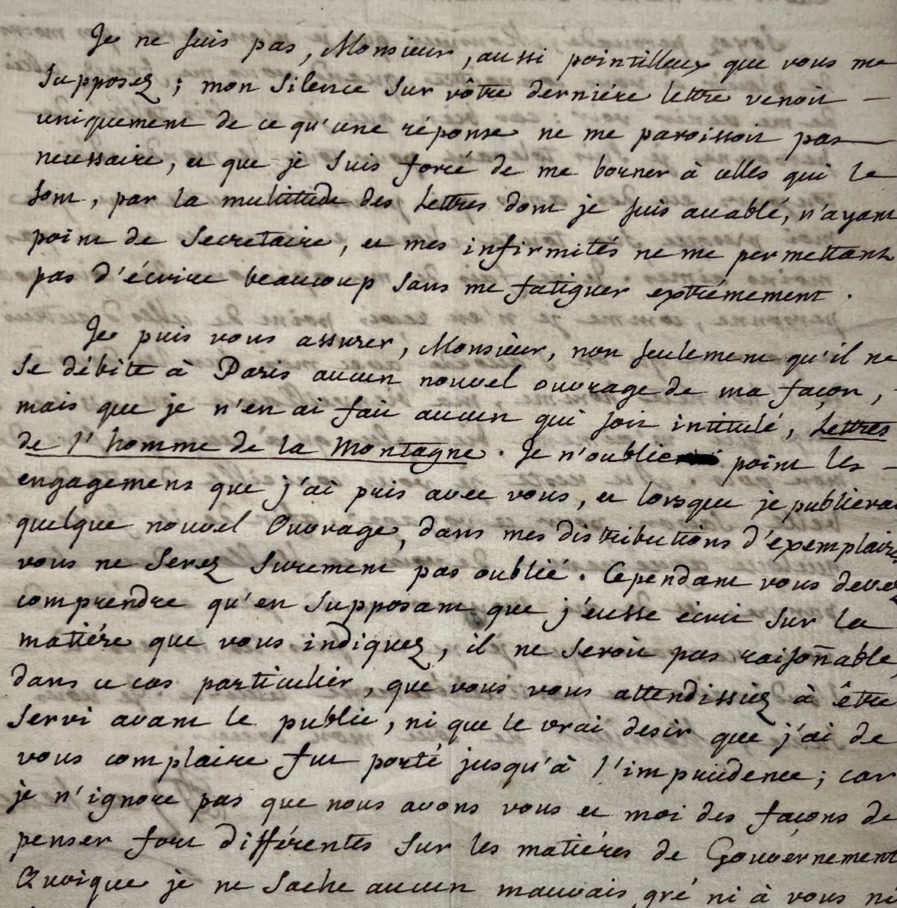 Je ne suis pas, Monsieur, aussi pointilleux que vous me
supposez ; mon silence sur vôtre derniére lettre venoit —
uniquement de ce qu'une réponse ne me paroissoit pas
necessaire, et que je suis forcé de me borner à celles qui le
sont, par la multitude des Lettres dont je suis accablé, n'ayant
point de Secretaire, et mes infirmités ne me permettant
pas d'écrire beaucoup sans me fatiguer extrémement.
Je puis vous assurer, Monsieur, non seulement qu'il ne
se débite à Paris aucun nouvel ouvrage de ma façon,
mais que je n'en ai fait aucun qui soit intitulé, Lettres
de l'homme de la Montagne. Je n'oublie point les —
engagemens que j'ai pris avec vous, et lorsque je publierai
quelque nouvel Ouvrage, dans mes distributions d'exemplaires
vous ne serez surement pas oublié. Cependant vous devez
comprendre qu'en supposant que j'eusse écrit sur la
matiére que vous indiquez, il ne seroit pas raisoñable,
dans ce cas particulier, que vous vous attendissiez à être
servi avant le public, ni que le vrai desir que j'ai de
vous complaire fut porté jusqu'à l'imprudence ; car
je n'ignore pas que nous avons vous et moi des façons de
penser fort différentes sur les matiéres de Gouvernement
Quoique je ne sache aucun mauvais gré ni à vous ni